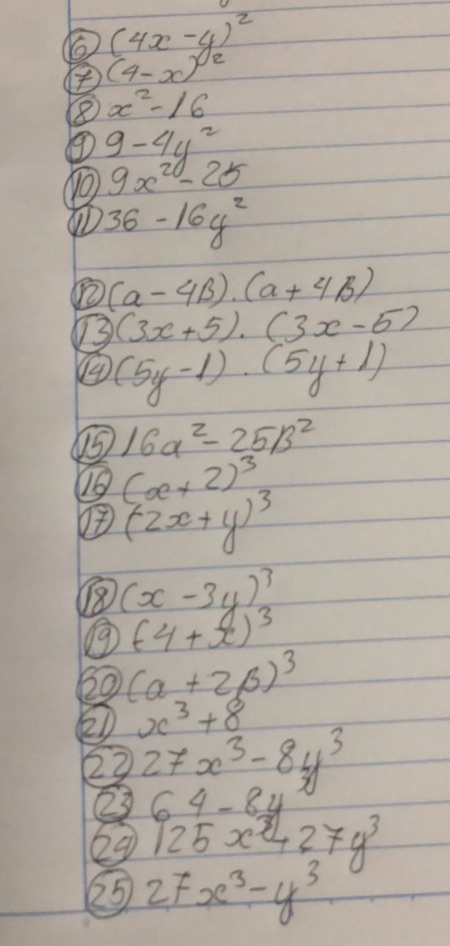 ⑥ (4x - y)²
⑦ (4 - x)²
⑧ x² - 16
⑨ 9 - 4y²
⑩ 9x² - 25
⑪ 36 - 16y²
⑫ (a - 4B) . (a + 4B)
⑬ (3x + 5) . (3x - 5)
⑭ (5y - 1) . (5y + 1)
⑮ 16a² - 25B²
⑯ (x + 2)³
⑰ (-2x + y)³
⑱ (x - 3y)³
⑲ (-4 + x)³
⑳ (a + 2B)³
㉑ x³ + 8
㉒ 27x³ - 8y³
㉓ 64 - 8y³
㉔ 125x³ + 27y³
㉕ 27x³ - y³